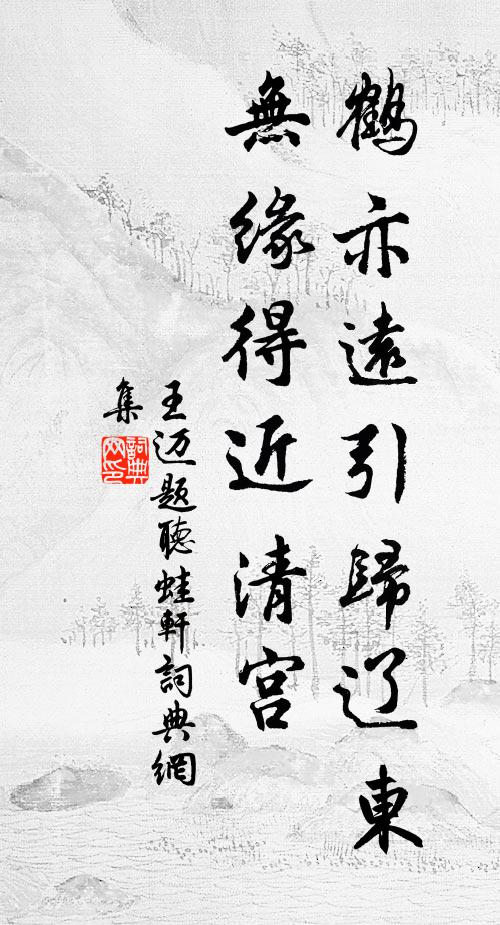 鶴亦遠引歸辽東
無緣得近清宫
王迈题聽蛙軒詞典網
集
詞典网印